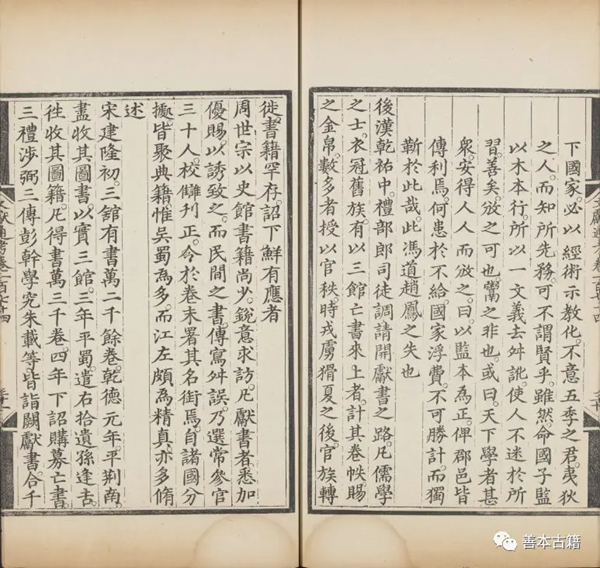 下國家必以經術示教化不意五季之君夷狄
之人而知所先務可不謂賢乎雖然命國子監
以木本行所以一文義去舛訛使人不迷於所
習善矣攽之可也鬻之非也或曰天下學者甚
衆安得人人而攽之曰以監本為正俾郡邑皆
傳刋焉何患於不給國家浮費不可勝計而獨
靳於此哉此馮道趙鳳之失也
後漢乾祐中禮部郎司徒調請開獻書之路凡儒學
之士衣冠舊族有以三館亡書來上者計其卷帙賜
之金帛數多者授以官秩時戎虜猾夏之後官族轉
徙書籍罕存詔下鮮有應者
周世宗以史館書籍尚少銳意求訪凡獻書者悉加
優賜以誘致之而民間之書傳寫舛誤乃選常參官
三十人校讎刊正令於卷末署其名銜焉自諸國分
據皆聚典籍惟吳蜀為多而江左頗為精真亦多脩
述
宋建隆初三舘有書萬二千餘卷乾德元年平荆南
盡收其圖書以實三舘三年平蜀遣右拾遺孫逢吉
徃收其圖籍凡得書萬三千卷四年下詔購募亡書
三禮涉弼三傳彭幹學究朱載等皆詣闕獻書合千
文獻通考卷一百七十四
善本古籍